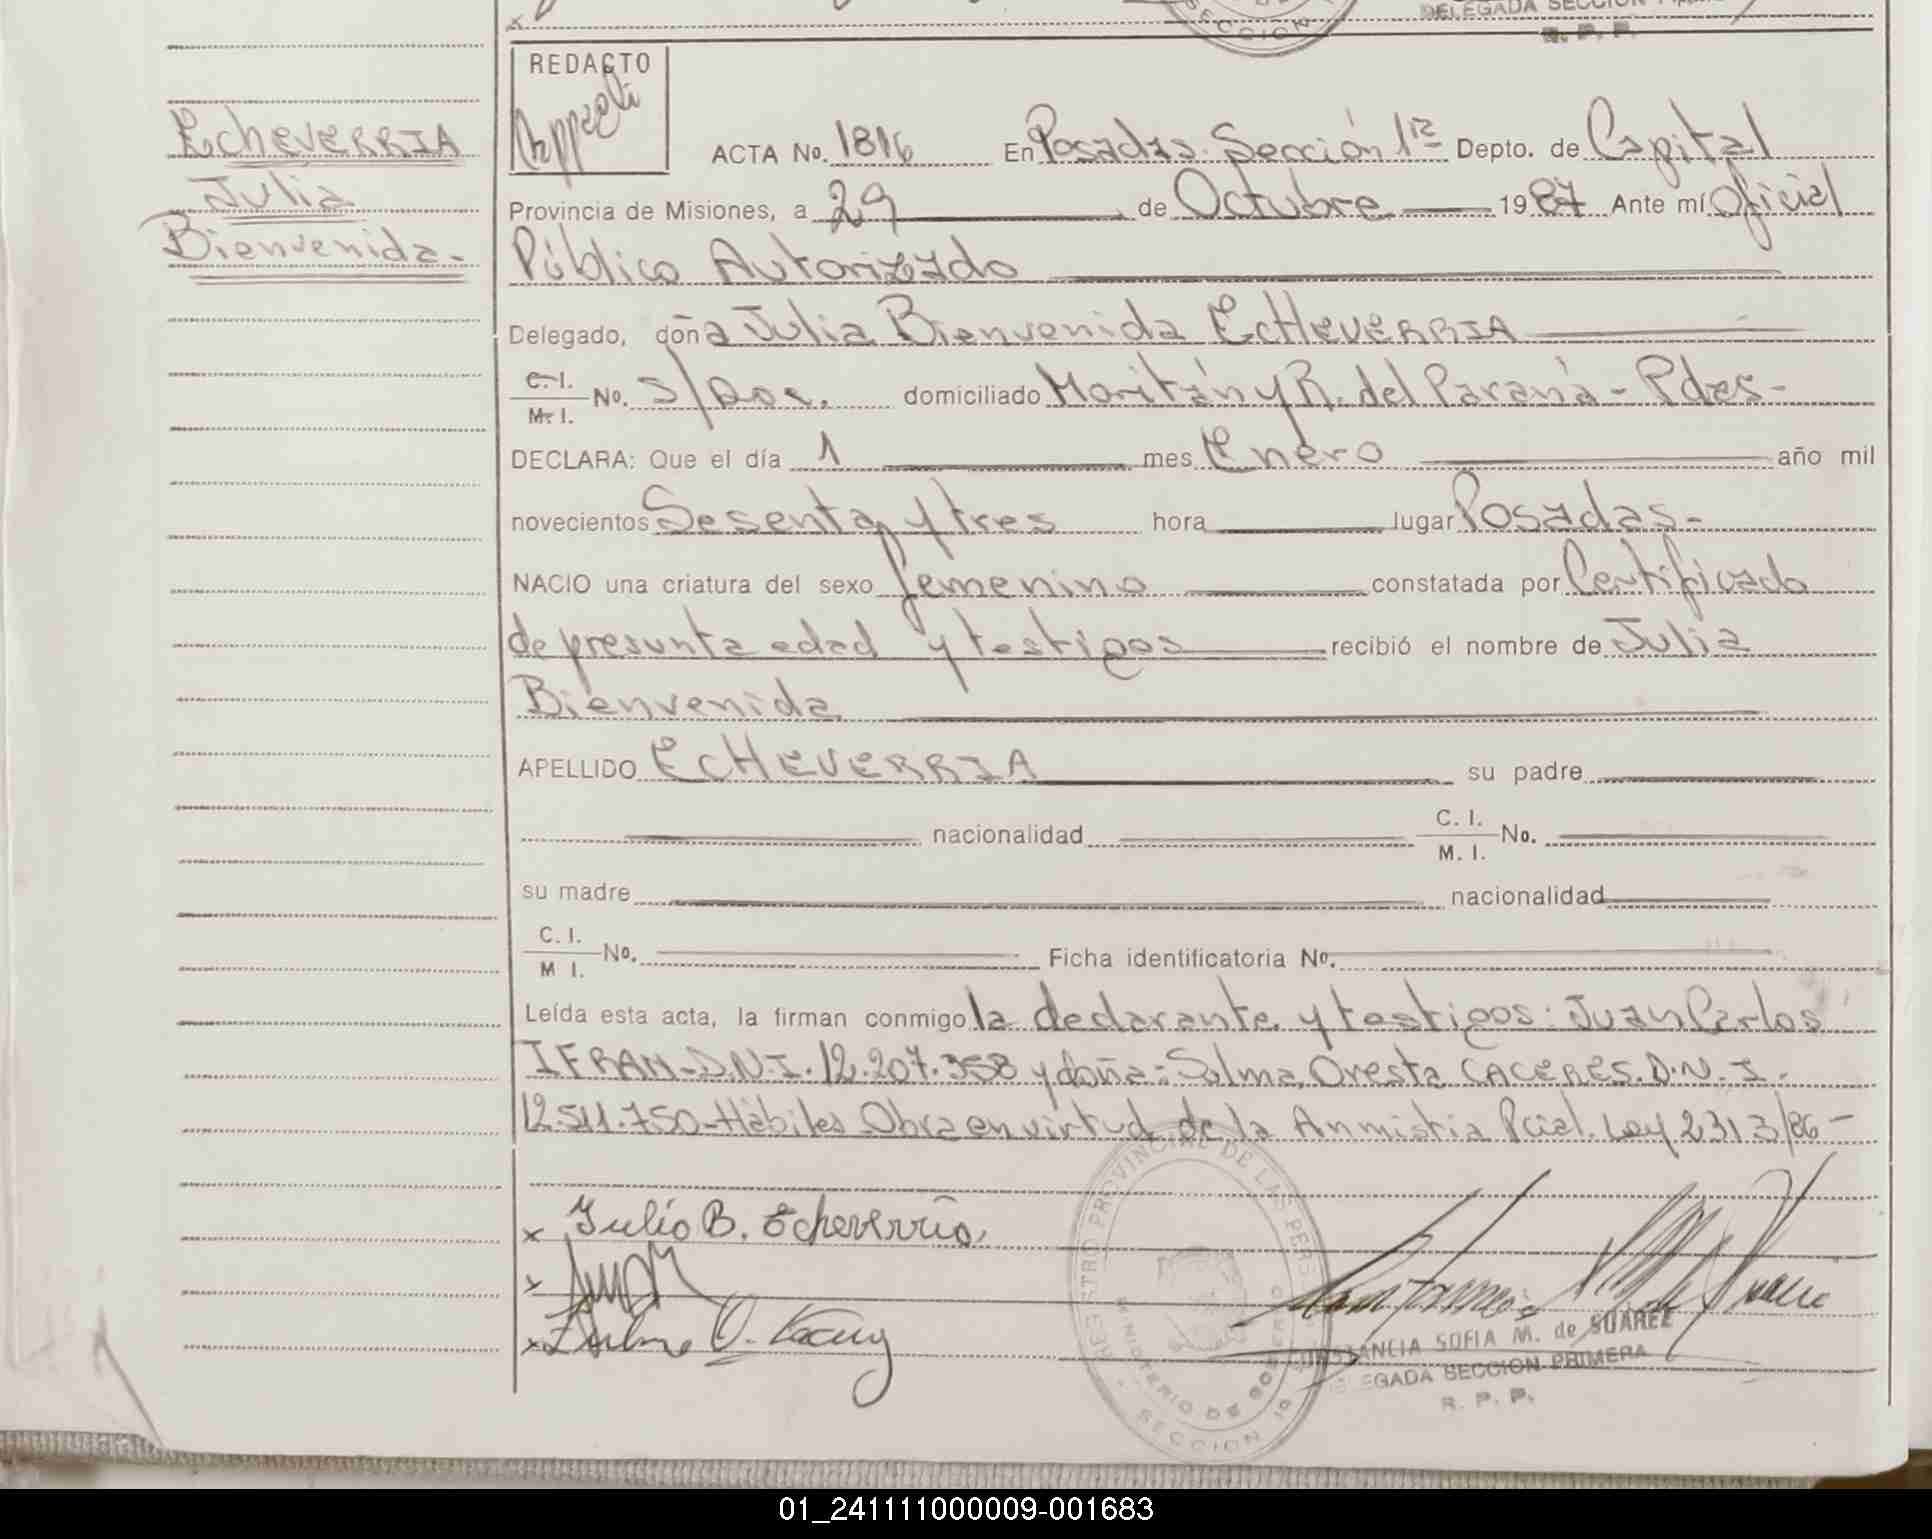 DELEGADA SECCION
R. P. P.
SECCION
REDACTO
Echeverria
Julia
Bienvenida-
ACTA No. 1816 En Posadas. Sección 1ra Depto. de Capital
Provincia de Misiones, a 29 de Octubre 1987 Ante mí Oficial
Público Autorizado
Delegado, doña Julia Bienvenida EcHEVERRIA
C. I. / M. I. No. s/Doc. domiciliado Maritán y R. del Paraná - Pdas-
DECLARA: Que el día 1 mes Enero año mil
novecientos Sesenta y tres hora lugar Posadas-
NACIO una criatura del sexo femenino constatada por Certificado
de presunta edad y testigos recibió el nombre de Julia
Bienvenida
APELLIDO EcHEVERRIA su padre
nacionalidad C. I. / M. I. No.
su madre nacionalidad
C. I. / M I. No. Ficha identificatoria No.
Leída esta acta, la firman conmigo la declarante y testigos: Juan Carlos
IFRAN-D.N.I. 12.207.358 y doña: Sulma Oresta CACERES. D.N.I.
12.511.750-Hábiles Obra en virtud de la Anmistia Pcial. Ley 2313/86-
x Julia B. Echeverria
x
x Zulma O.
REGISTRO PROVINCIAL DE LAS PERS
MINISTERIO DE GOBIERNO
SECCION 01
CONSTANCIA SOFIA M. de SUAREZ
DELEGADA SECCION PRIMERA
R. P. P.
01_241111000009-001683